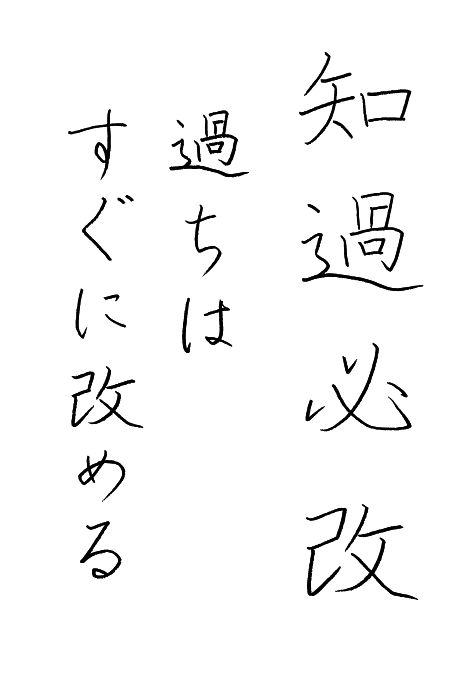 知過必改
過ちは
すぐに改める